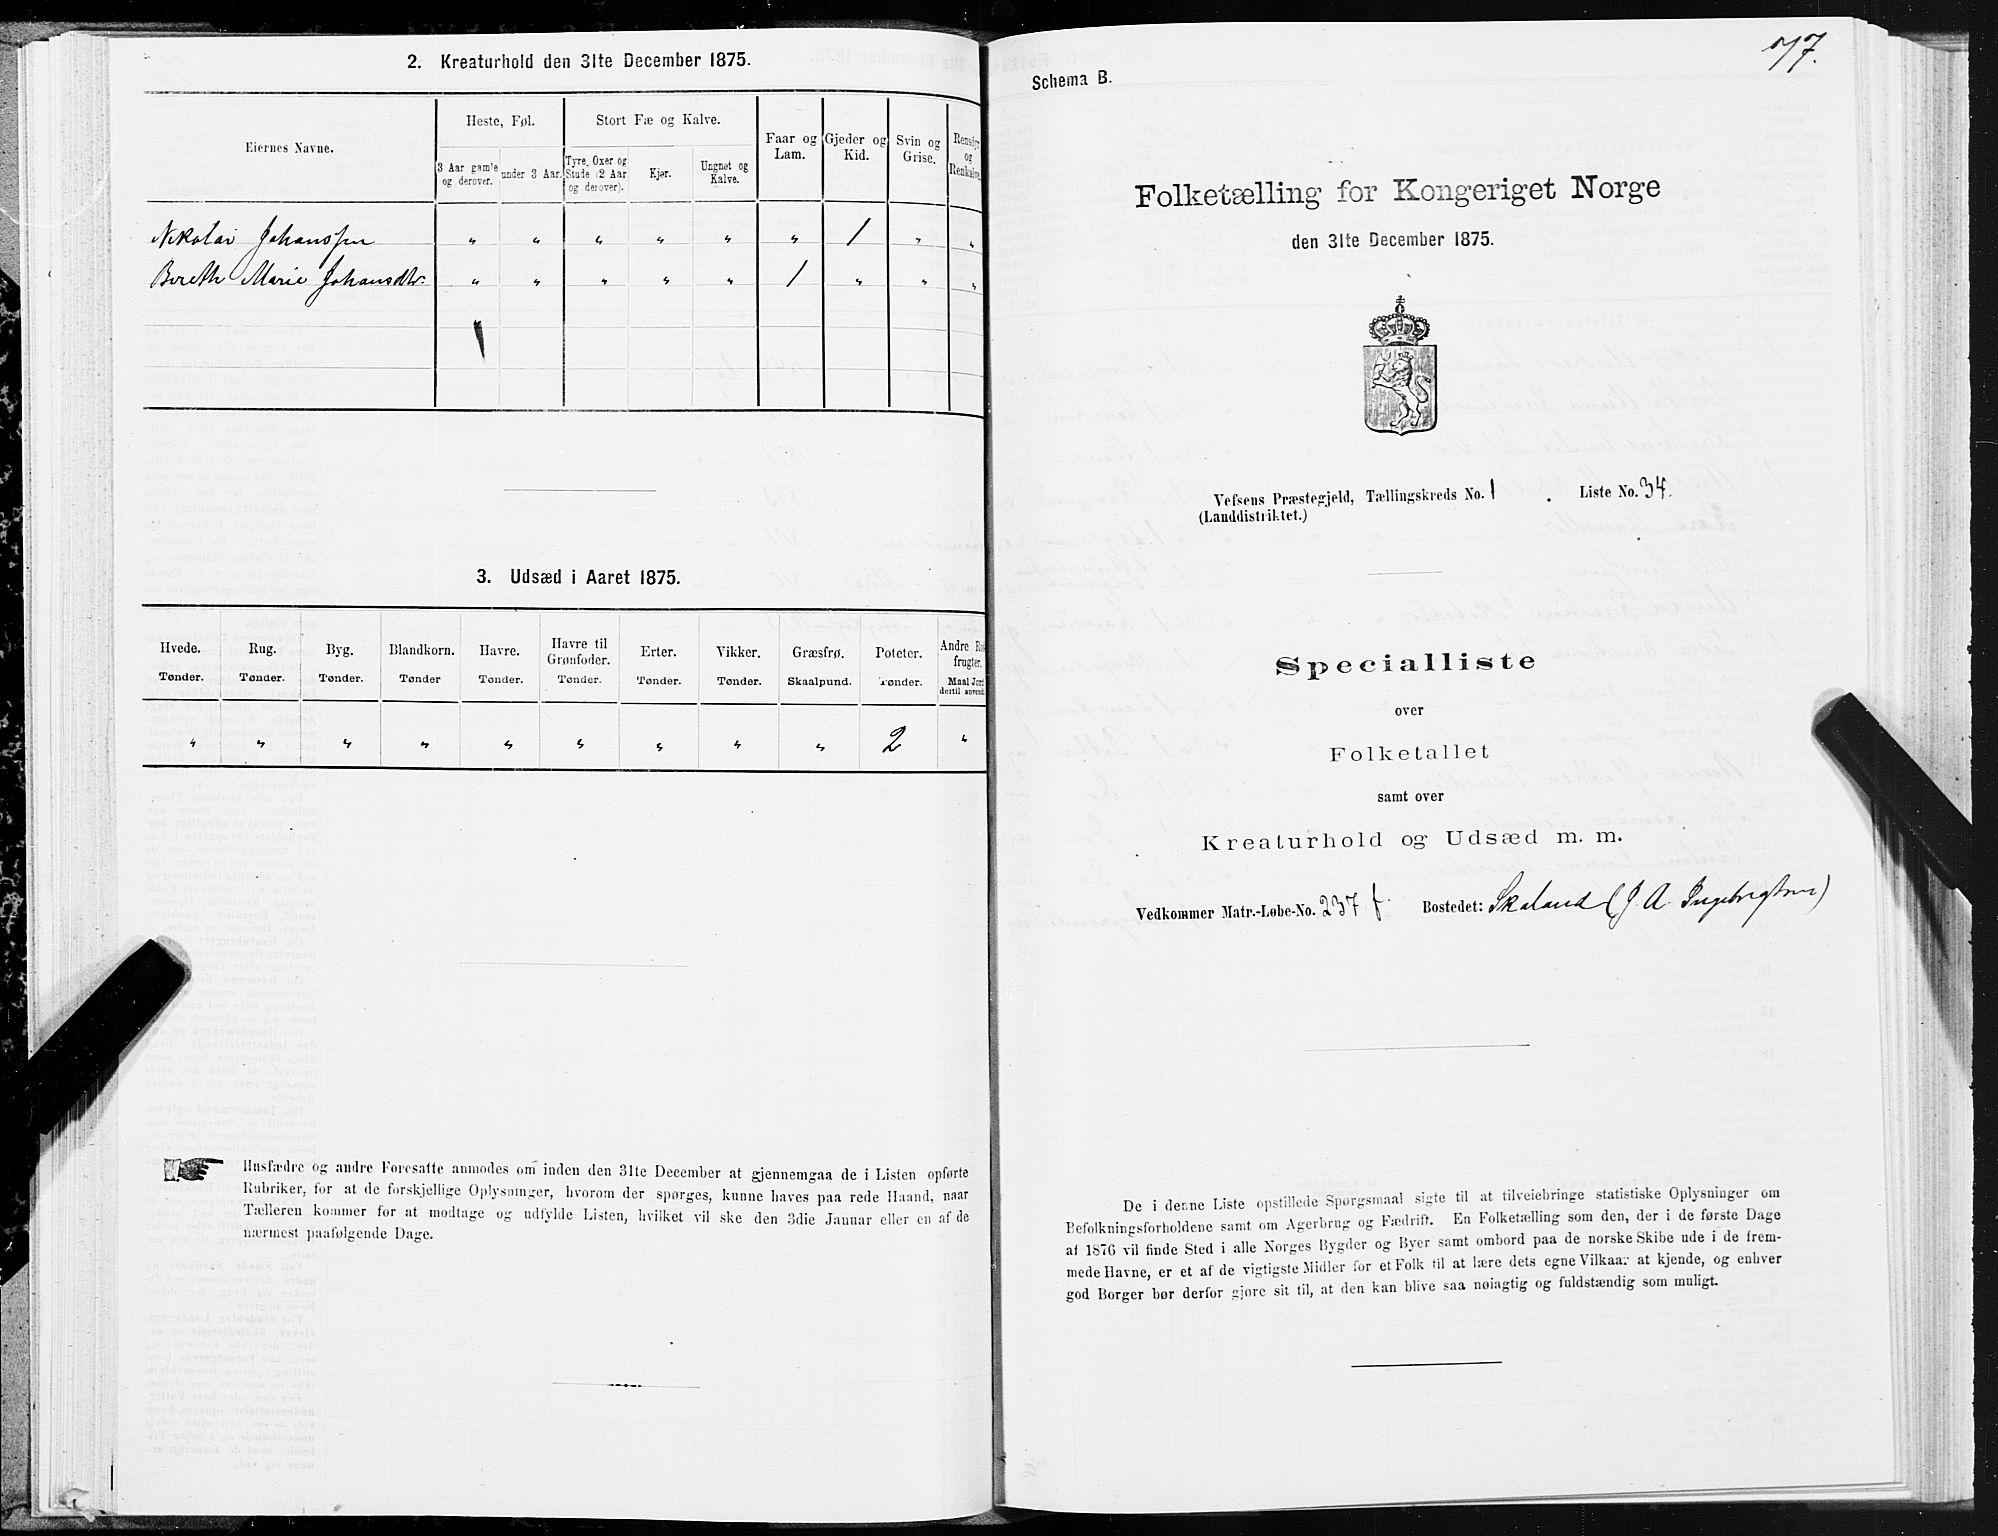 2. Kreaturhold den 31te December 1875.
Eiernes Navne.
Heste, Føl.
Stort Fæ og Kalve.
Faar og Lam.
Gjeder og Kid.
Svin og Grise.
Rensdyr og Renkalve.
3 Aar gamle og derover.
under 3 Aar.
Tyre, Oxer og Stude (2 Aar og derover).
Kjør.
Ungnøt og Kalve.
Nikolai Johanssen " " " " " " 1 " "
Bereth Marie Johansdtr. " " " " " 1 " " "
3. Udsæd i Aaret 1875.
Hvede. Rug. Byg. Blandkorn. Havre. Havre til Grønfoder. Erter. Vikker. Græsfrø. Poteter. Andre Rodfrugter.
Tønder. Tønder. Tønder. Tønder Tønder. Tønder. Tønder. Tønder. Skaalpund. Tønder. Maal Jord dertil anvendt.
" " " " " " " " " 2 "
Husfædre og andre Foresatte anmodes om inden den 31te December at gjennemgaa de i Listen opførte
Rubriker, for at de forskjellige Oplysninger, hvorom der spørges, kunne haves paa rede Haand, naar
Tælleren kommer for at modtage og udfylde Listen, hvilket vil ske den 3die Januar eller en af de
nærmest paafølgende Dage.
77.
Schema B.
Folketælling for Kongeriget Norge
den 31te December 1875.
Vefsens Præstegjeld, Tællingskreds No. 1. Liste No. 34.
(Landdistriktet.)
Specialliste
over
Folketallet
samt over
Kreaturhold og Udsæd m. m.
Vedkommer Matr.-Løbe-No. 237 f. Bostedet: Skaland (J. A. Ingebrigtsen)
De i denne Liste opstillede Spørgsmaal sigte til at tilveiebringe statistiske Oplysninger om
Befolkningsforholdene samt om Agerbrug og Fædrift. En Folketælling som den, der i de første Dage
af 1876 vil finde Sted i alle Norges Bygder og Byer samt ombord paa de norske Skibe ude i de frem-
mede Havne, er et af de vigtigste Midler for et Folk til at lære dets egne Vilkaar at kjende, og enhver
god Borger bør derfor gjøre sit til, at den kan blive saa nøiagtig og fuldstændig som muligt.